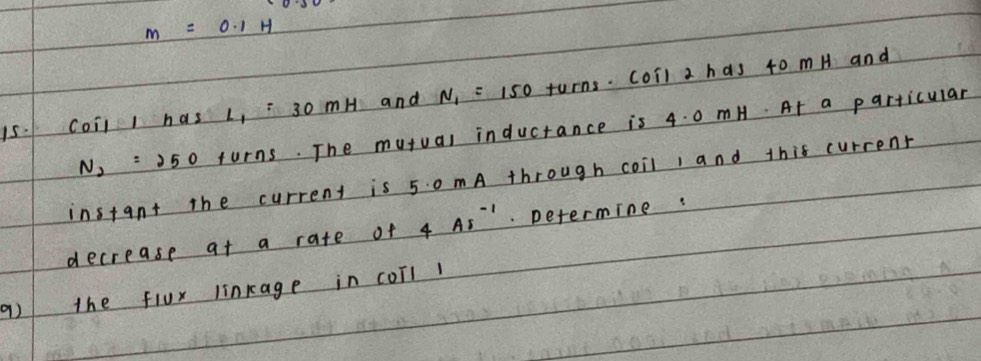 m = 0.1 H
15. Coil 1 has L₁ = 30 mH and N₁ = 150 turns. Coil 2 has 40 mH and
N₂ = 250 turns. The mutual inductance is 4.0 mH. At a particular
instant the current is 5.0 mA through coil 1 and this current
decrease at a rate of 4 As⁻¹. Determine :
a) the flux linkage in coil 1